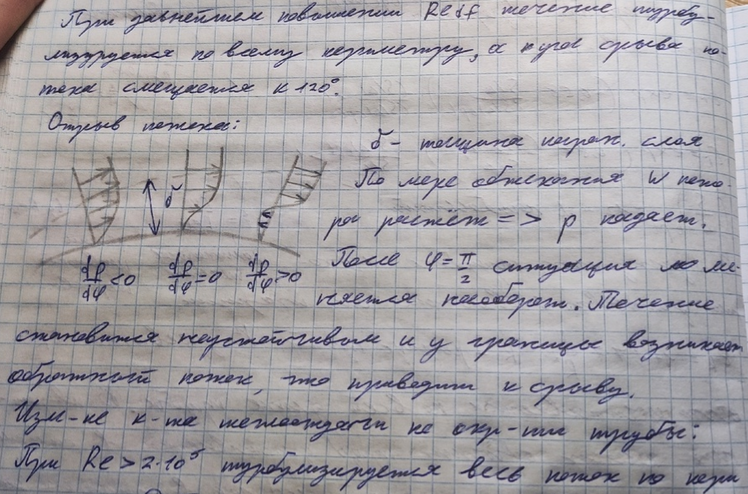 При дальнейшем повышении Re_df течение турбу-
лизируется по всему периметру, а угол срыва по-
тока смещается к 120°.
Отрыв потока:
δ - толщина погран. слоя
По мере обтекания W пото-
ра растёт => p падает.
После φ = π/2 ситуация ме-
няется наоборот. Течение
δ
dp/dφ < 0 dp/dφ = 0 dp/dφ > 0
становится неустойчивом и у границы возникает
обратный поток, что приводит к срыву.
Изм-не к-та теплоотдачи по окр-ти трубы:
При Re > 2·10⁵ турбулизируется весь поток по пери